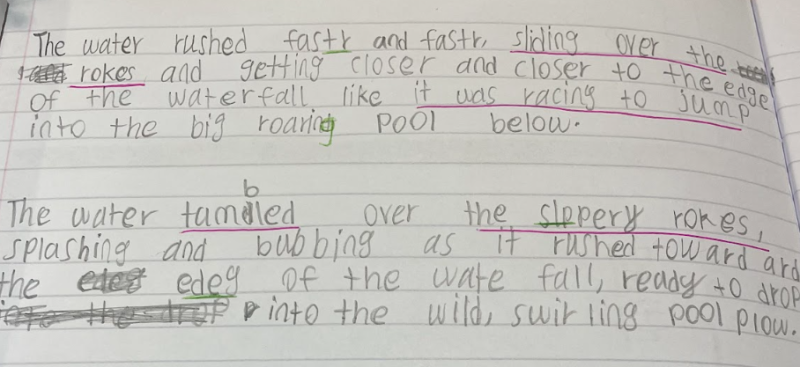 The water rushed fastr and fastr, sliding over the
rokes and getting closer and closer to the edge
of the waterfall like it was racing to jump
into the big roaring pool below.
b
The water tamdled over the slppery rokes,
splashing and bubbing as it rushed toward ard
the edeg of the wate fall, ready to drop
into the wild, swirling pool plow.